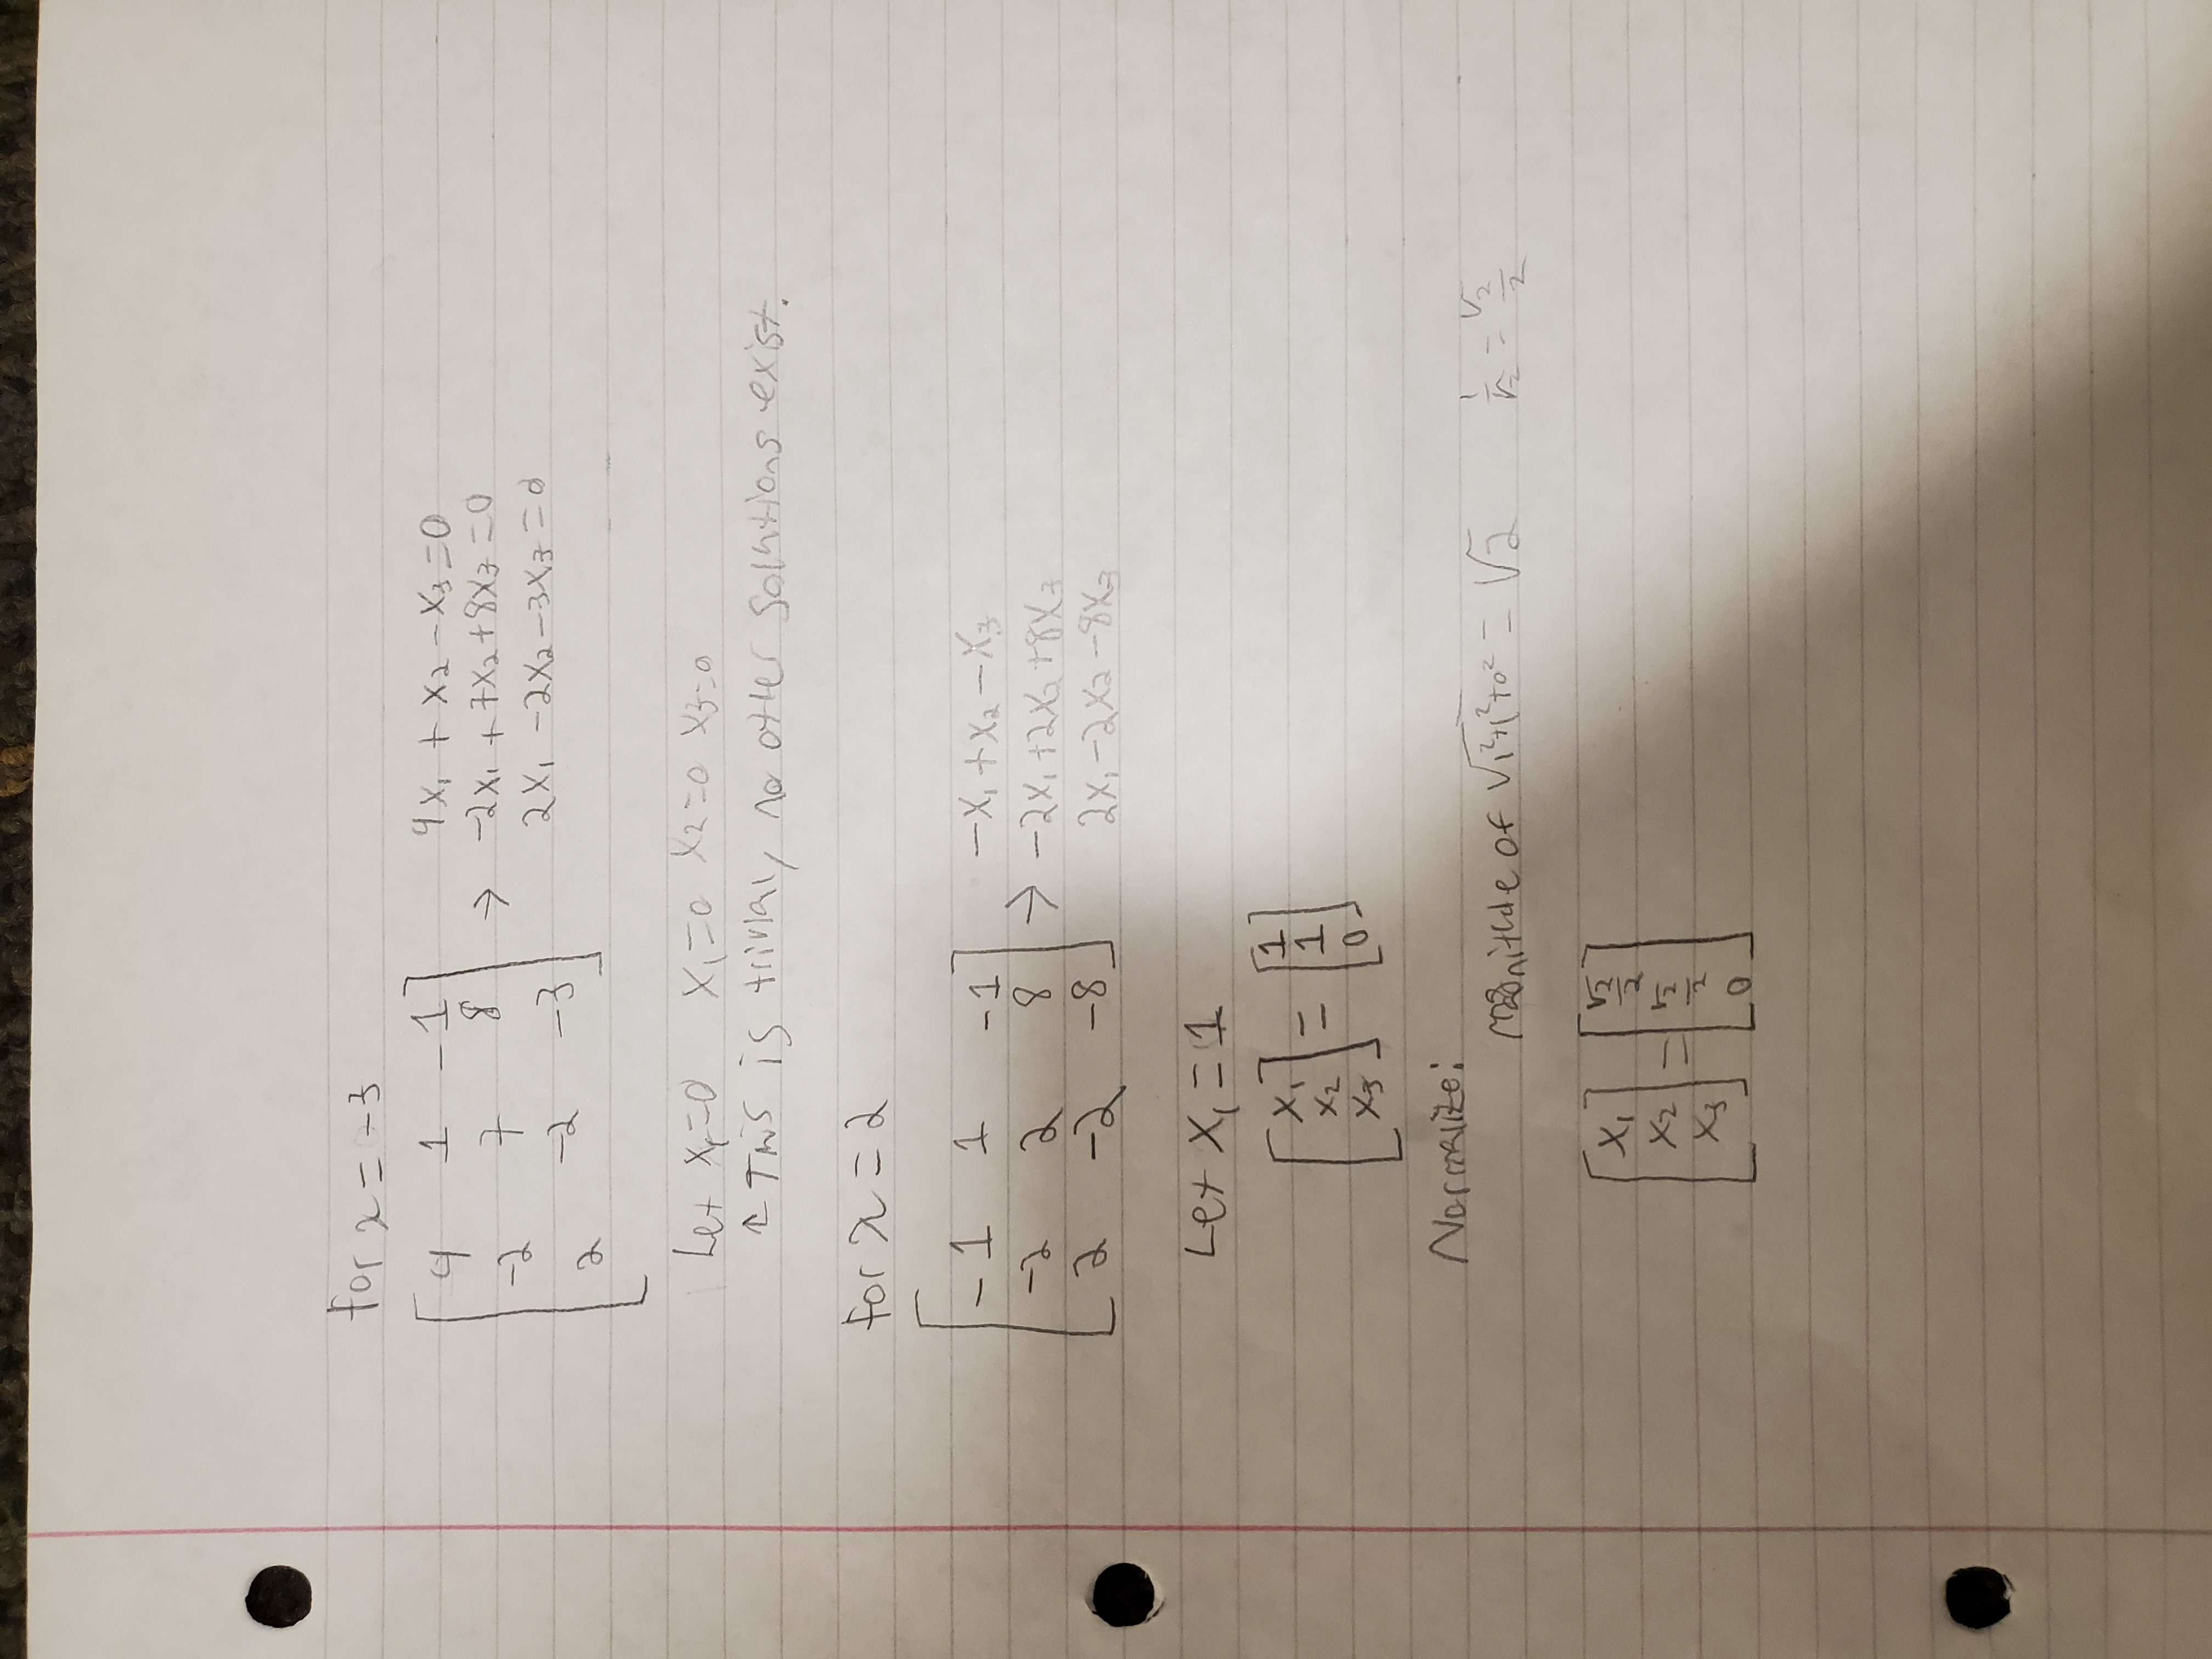 For λ = -3
[4 1 -1] → 4x₁ + x₂ - x₃ = 0
[-2 7 8] -2x₁ + 7x₂ + 8x₃ = 0
[2 -2 -3] 2x₁ - 2x₂ - 3x₃ = 0
Let x₁=0 x₁=0 x₂=0 x₃=0
↑ This is trivial, no other solutions exist.
For λ = 2
[-1 1 -1] → -x₁ + x₂ - x₃
[-2 2 8] -2x₁ + 2x₂ + 8x₃
[2 -2 -8] 2x₁ - 2x₂ - 8x₃
Let x₁ = 1
[x₁] = [1]
[x₂] [1]
[x₃] [0]
Normalize:
magnitude of √1²+1²+0² = √2 1/√2 = √2/2
[x₁] = [√2/2]
[x₂] [√2/2]
[x₃] [0]